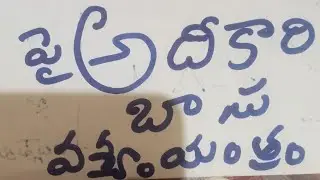 పై అదికారి
బాసు
వశ్యం యంత్రం